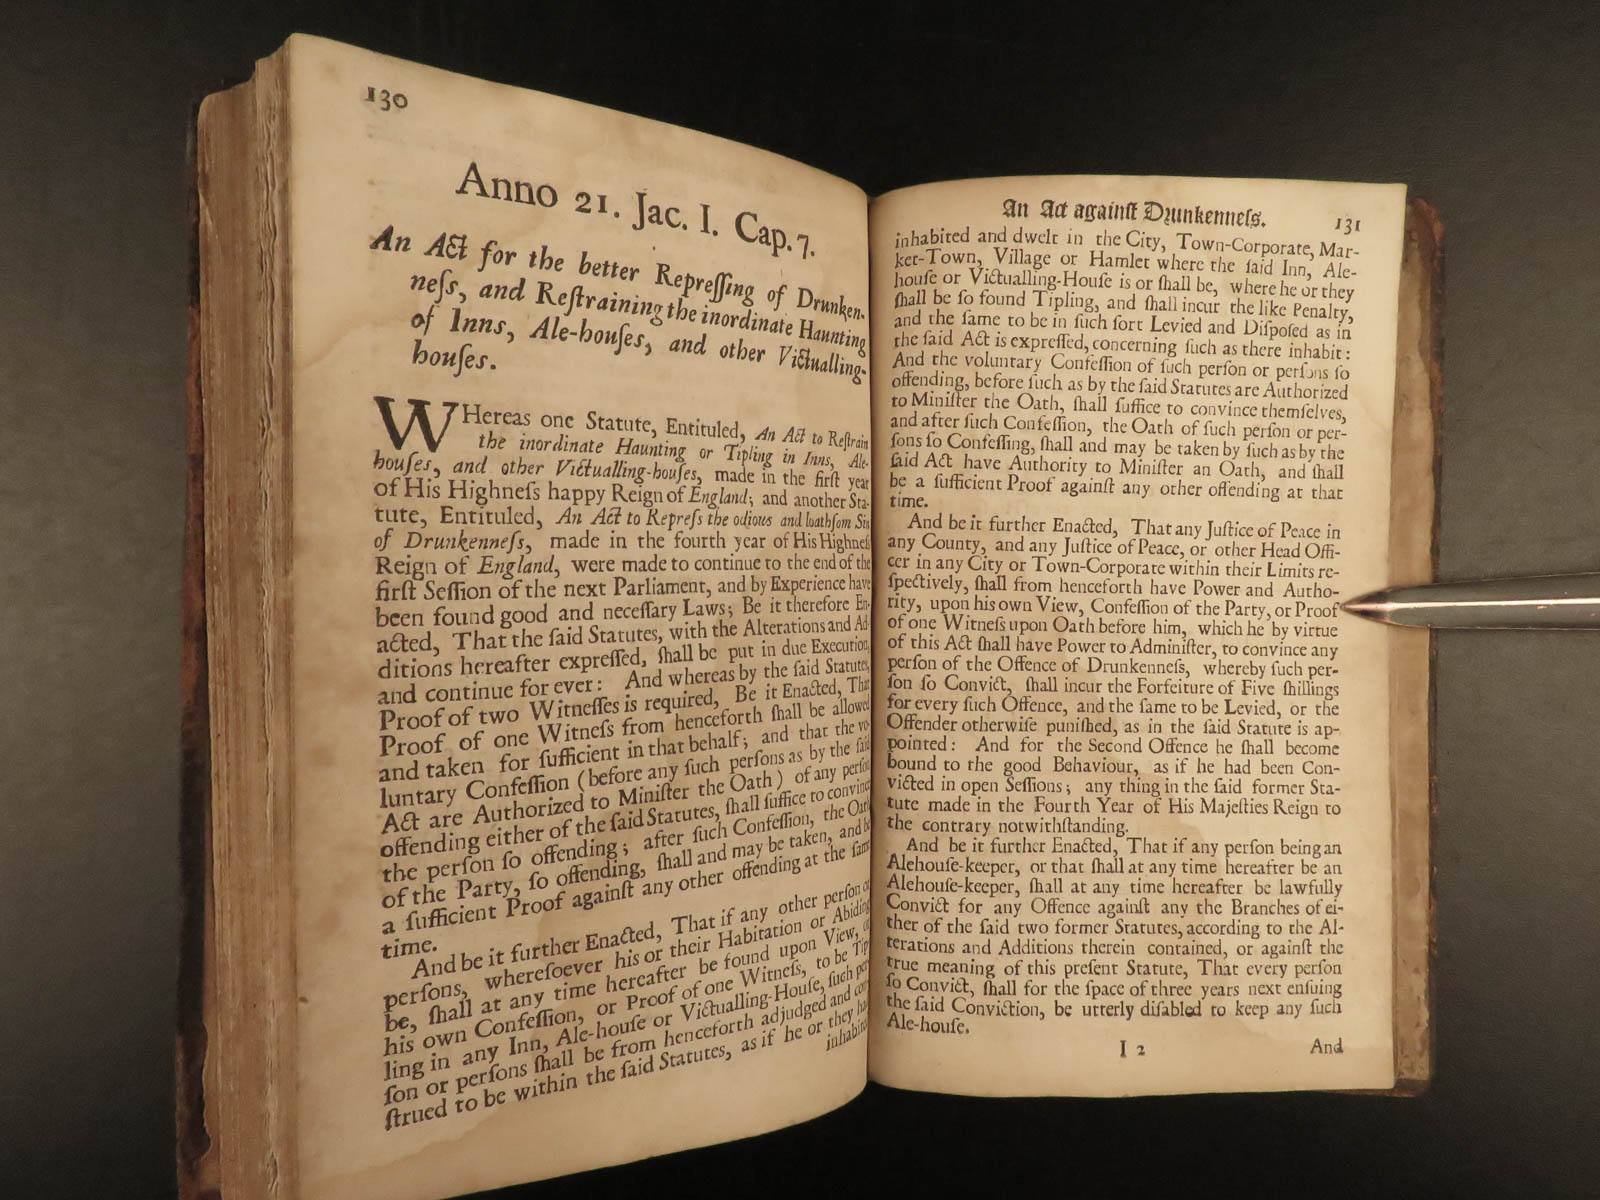 130
Anno 21. Jac. I. Cap. 7.
An Act for the better Repreſſing of Drunken-
neſs, and Reſtraining the inordinate Haunting
of Inns, Ale-houſes, and other Victualling-
houſes.
WHereas one Statute, Entituled, An Act to Reſtrain
the inordinate Haunting or Tipling in Inns, Ale-
houſes, and other Victualling-houſes, made in the firſt year
of His Highneſs happy Reign of England; and another Sta-
tute, Entituled, An Act to Repreſs the odious and loathſom Sin
of Drunkenneſs, made in the fourth year of His Highneſs
Reign of England, were made to continue to the end of the
firſt Seſſion of the next Parliament, and by Experience have
been found good and neceſſary Laws; Be it therefore En-
acted, That the ſaid Statutes, with the Alterations and Ad-
ditions hereafter expreſſed, ſhall be put in due Execution,
and continue for ever: And whereas by the ſaid Statutes,
Proof of two Witneſſes is required, Be it Enacted, That
Proof of one Witneſs from henceforth ſhall be allowed
and taken for ſufficient in that behalf; and that the vo-
luntary Confeſſion (before any ſuch perſons as by the ſaid
Act are Authorized to Miniſter the Oath) of any perſon
offending either of the ſaid Statutes, ſhall ſuffice to convince
the perſon ſo offending; after ſuch Confeſſion, the Oath
of the Party, ſo offending, ſhall and may be taken, and be
a ſufficient Proof againſt any other offending at the ſame
time.
And be it further Enacted, That if any other perſon or
perſons, whereſoever his or their Habitation or Abiding
be, ſhall at any time hereafter be found upon View, or
his own Confeſſion, or Proof of one Witneſs, to be Tip-
ling in any Inn, Ale-houſe or Victualling-Houſe, ſuch per-
ſon or perſons ſhall be from henceforth adjudged and con-
ſtrued to be within the ſaid Statutes, as if he or they had
inhabited
An Act againſt Drunkenneſs. 131
inhabited and dwelt in the City, Town-Corporate, Mar-
ket-Town, Village or Hamlet where the ſaid Inn, Ale-
houſe or Victualling-Houſe is or ſhall be, where he or they
ſhall be ſo found Tipling, and ſhall incur the like Penalty,
and the ſame to be in ſuch ſort Levied and Diſpoſed as in
the ſaid Act is expreſſed, concerning ſuch as there inhabit:
And the voluntary Confeſſion of ſuch perſon or perſons ſo
offending, before ſuch as by the ſaid Statutes are Authorized
to Miniſter the Oath, ſhall ſuffice to convince themſelves,
and after ſuch Confeſſion, the Oath of ſuch perſon or per-
ſons ſo Confeſſing, ſhall and may be taken by ſuch as by the
ſaid Act have Authority to Miniſter an Oath, and ſhall
be a ſufficient Proof againſt any other offending at that
time.
And be it further Enacted, That any Juſtice of Peace in
any County, and any Juſtice of Peace, or other Head Offi-
cer in any City or Town-Corporate within their Limits re-
ſpectively, ſhall from henceforth have Power and Autho-
rity, upon his own View, Confeſſion of the Party, or Proof
of one Witneſs upon Oath before him, which he by virtue
of this Act ſhall have Power to Adminiſter, to convince any
perſon of the Offence of Drunkenneſs, whereby ſuch per-
ſon ſo Convict, ſhall incur the Forfeiture of Five ſhillings
for every ſuch Offence, and the ſame to be Levied, or the
Offender otherwiſe puniſhed, as in the ſaid Statute is ap-
pointed: And for the Second Offence he ſhall become
bound to the good Behaviour, as if he had been Con-
victed in open Seſſions; any thing in the ſaid former Sta-
tute made in the Fourth Year of His Majeſties Reign to
the contrary notwithſtanding.
And be it further Enacted, That if any perſon being an
Alehouſe-keeper, or that ſhall at any time hereafter be an
Alehouſe-keeper, ſhall at any time hereafter be lawfully
Convict for any Offence againſt any the Branches of ei-
ther of the ſaid two former Statutes, according to the Al-
terations and Additions therein contained, or againſt the
true meaning of this preſent Statute, That every perſon
ſo Convict, ſhall for the ſpace of three years next enſuing
the ſaid Conviction, be utterly diſabled to keep any ſuch
Ale-houſe.
I 2 And